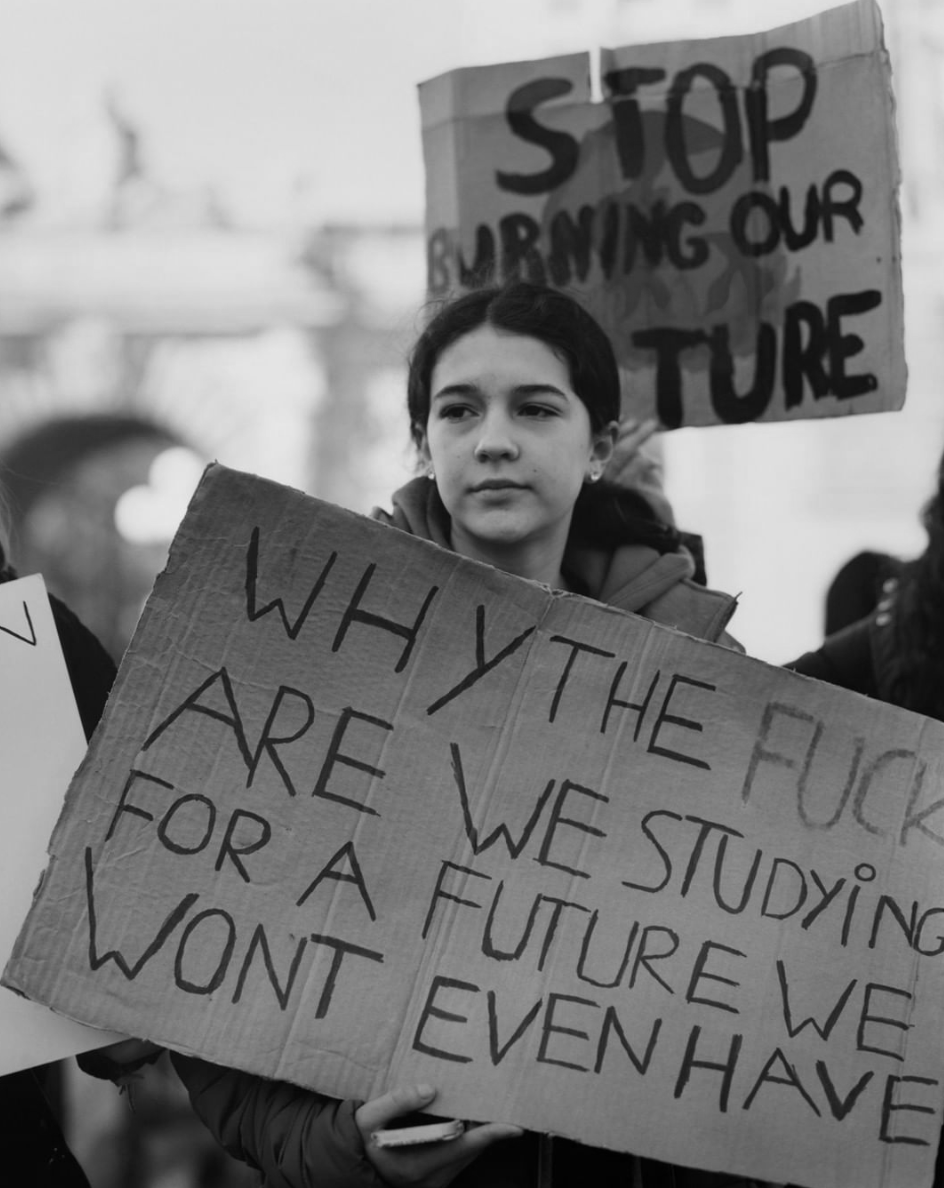 STOP
BURNING OUR
TURE
WHY THE FUCK
ARE WE STUDYING
FOR A FUTURE WE
WONT EVEN HAVE
V